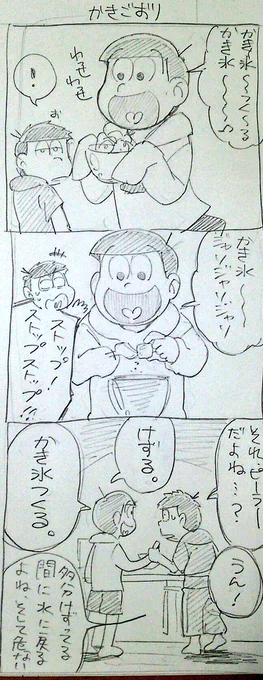 かきごおり
かき氷〜つく〜る
かき氷〜〜〜♪
わさ
わさ
！
お
かき氷〜〜〜
ジャリジャリジャリ
ストップ！
ストップストップ!!
それ、ピーラー
だよね…？
うん！
けずる。
かき氷つくる。
多分けずってる
間に水に戻る
よね、そして危ない